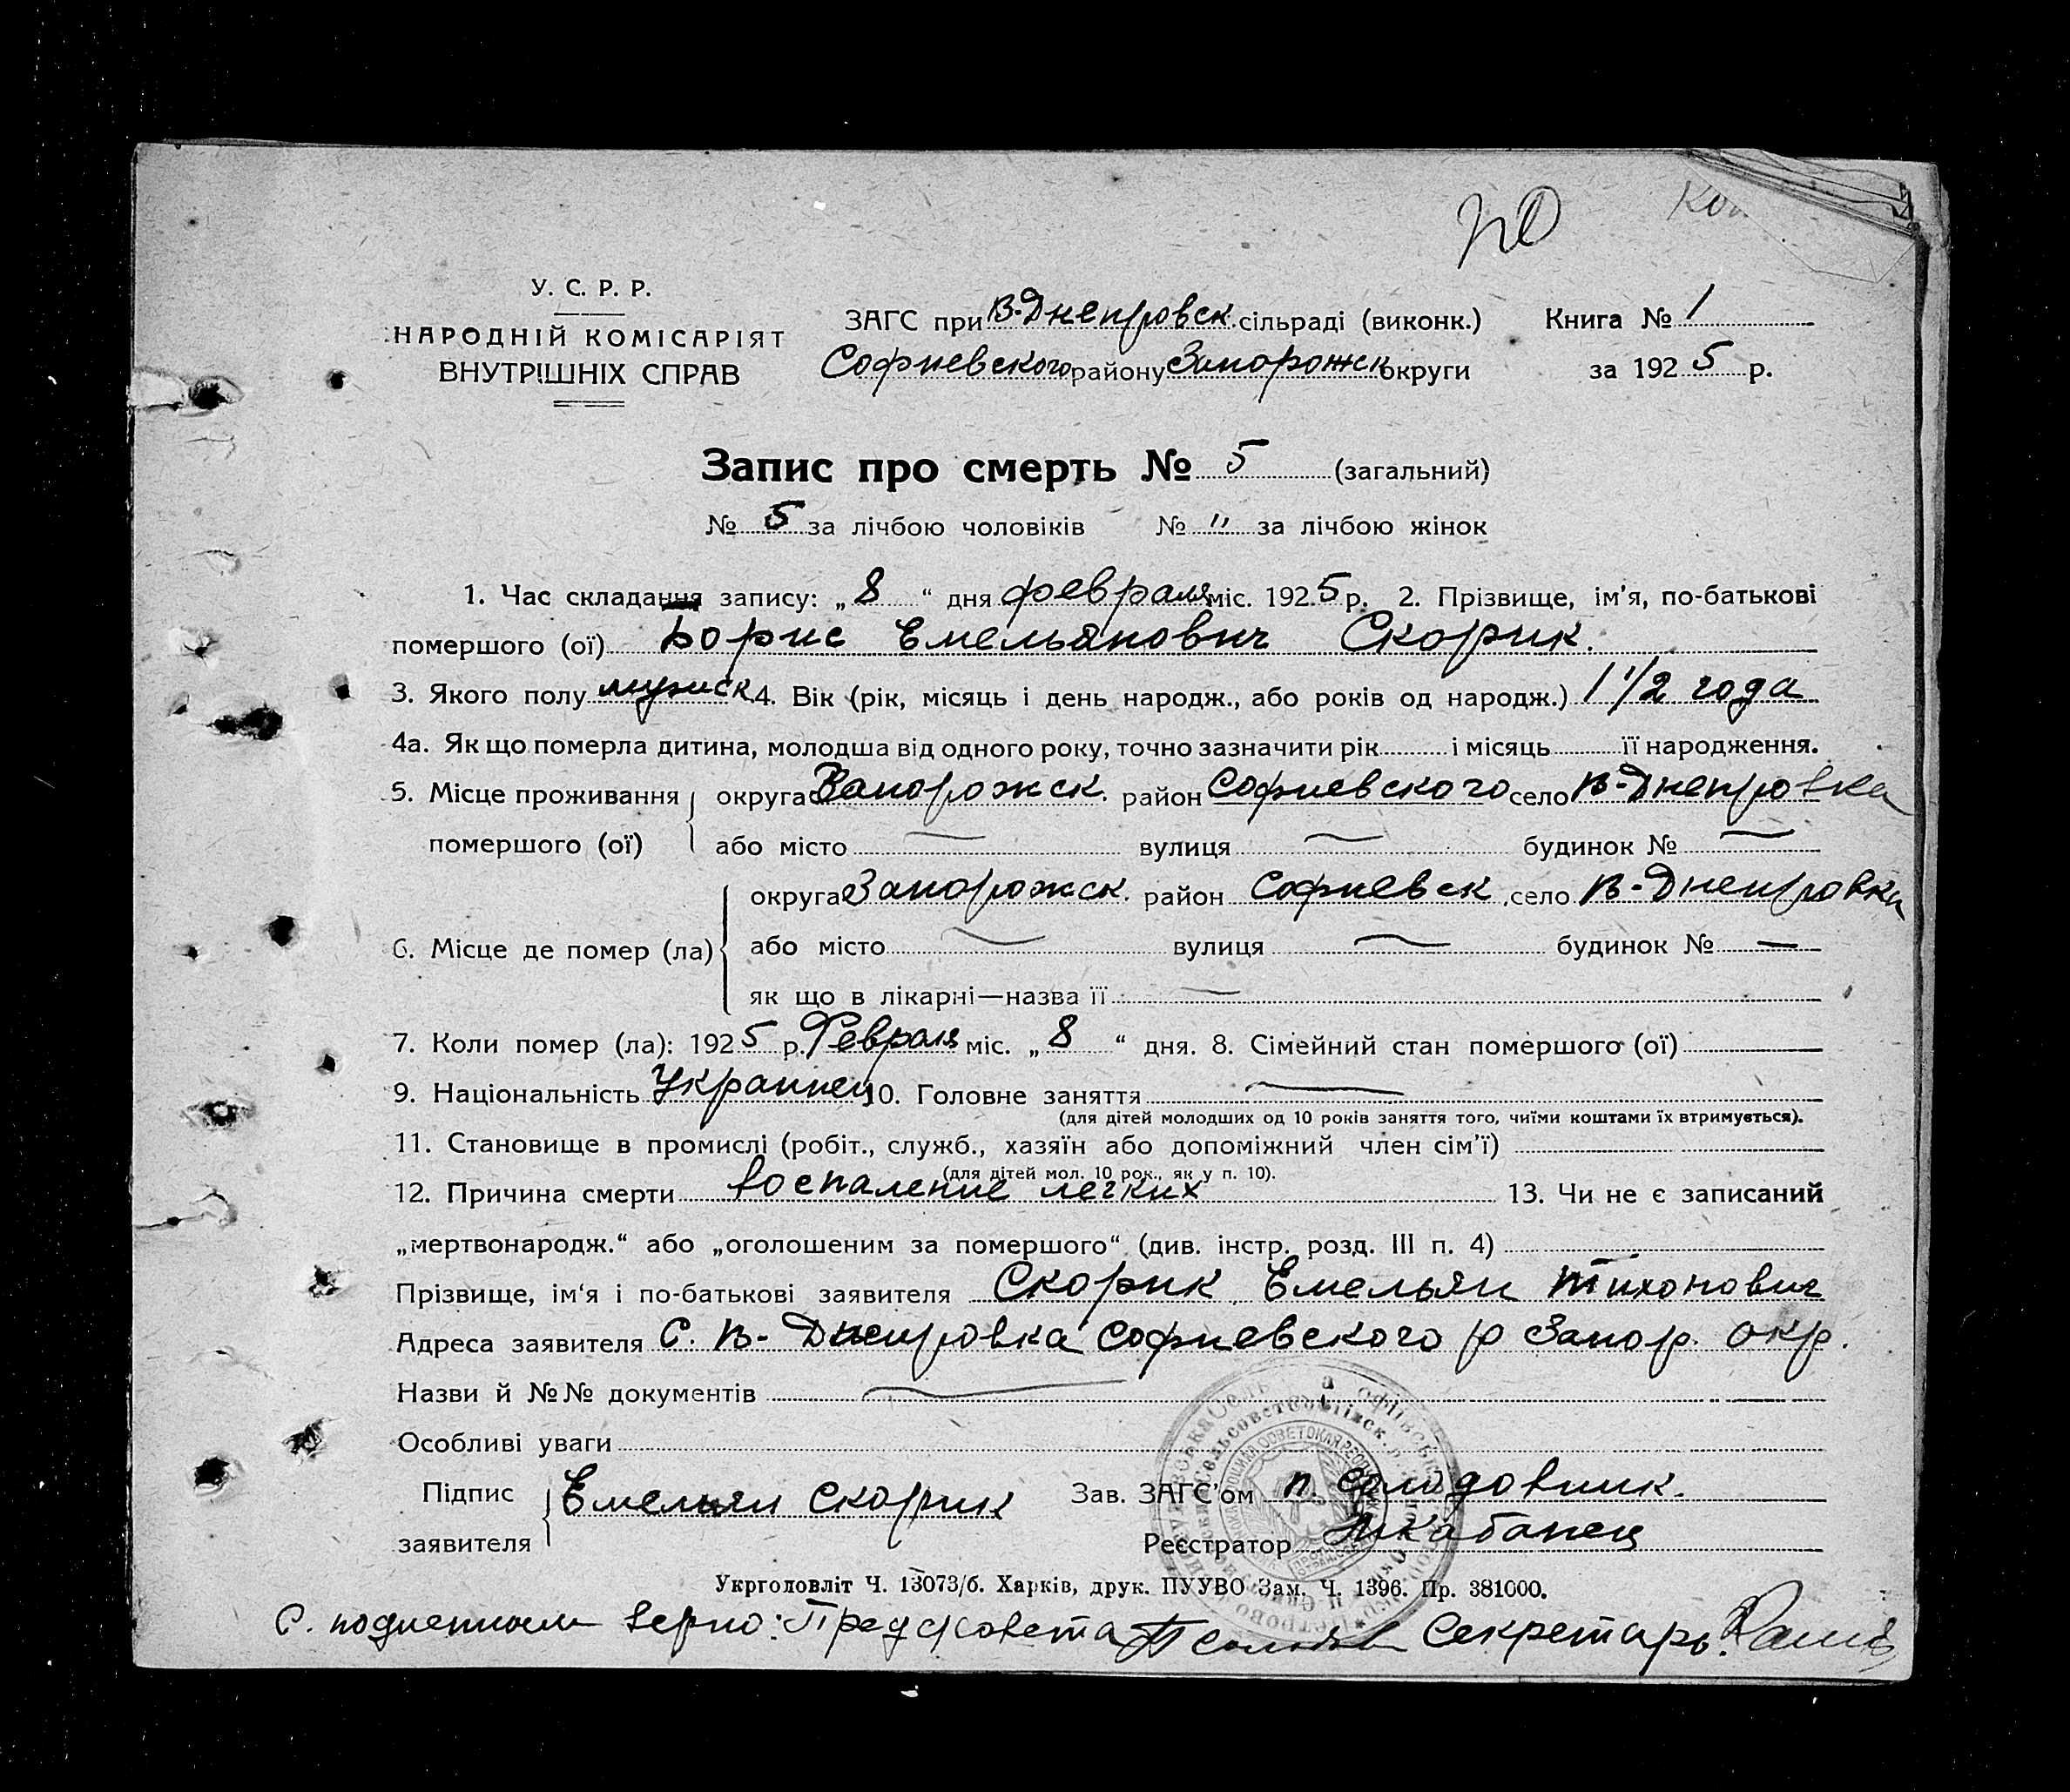 У. С. Р. Р.
НАРОДНІЙ КОМІСАРІЯТ
ВНУТРІШНІХ СПРАВ
ЗАГС при В-Днепровск. сільраді (виконк.) Книга № 1
Софиевского району Запорожск округи за 1925 р.
Запис про смерть № 5 (загальний)
№ 5 за лічбою чоловіків № " за лічбою жінок
1. Час складання запису: „8“ дня февраля міс. 1925 р. 2. Прізвище, ім’я, по-батькові
помершого (ої) Борис Емельянович Скорик.
3. Якого полу мужск. 4. Вік (рік, місяць і день народж., або років од народж.) 1 1/2 года
4а. Як що померла дитина, молодша від одного року, точно зазначити рік і місяць її народження.
5. Місце проживання округа Запорожск. район Софиевского село В-Днепровка
помершого (ої) або місто — вулиця — будинок № —
округа Запорожск. район Софиевск. село В-Днепровка
6. Місце де помер (ла) або місто — вулиця — будинок № —
як що в лікарні—назва її —
7. Коли помер (ла): 1925 р. Февраля міс. „8“ дня. 8. Сімейний стан помершого (ої)
9. Національність Украинец 10. Головне заняття —
(для дітей молодших од 10 років заняття того, чиїми коштами їх втримується).
11. Становище в промислі (робіт., служб., хазяїн або допоміжний член сім’ї)
(для дітей мол. 10 рок., як у п. 10).
12. Причина смерти воспаление легких 13. Чи не є записаний
„мертвонародж.“ або „оголошеним за помершого“ (див. інстр. розд. III п. 4)
Прізвище, ім‘я і по-батькові заявителя Скорик Емельян Тихонович
Адреса заявителя С. В-Днепровка Софиевского р Запор. окр.
Назви й №№ документів —
Особливі уваги
Підпис заявителя Емельян Скорик
Зав. ЗАГС’ом П. Солодовник.
Реєстратор Кабанец
Укрголовліт Ч. 13073/б. Харків, друк. ПУУВО Зам. Ч. 1396. Пр. 381000.
С. подлинным верно: Пред с/совета Секретарь